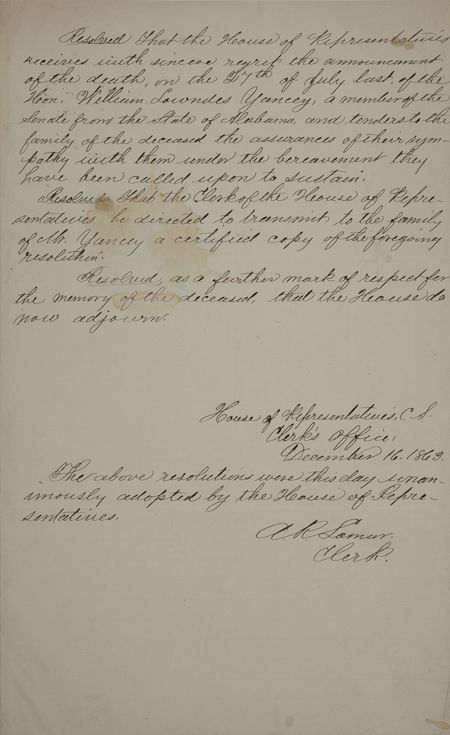 Resolved That the House of Representatives
receives with sincere regret the announcement
of the death, on the 27th of July last, of the
Hon. William Lowndes Yancey, a member of the
Senate from the State of Alabama, and tenders to the
family of the deceased the assurances of their sym-
pathy with them under the bereavement they
have been called upon to sustain.
Resolved. That the Clerk of the House of Repre-
sentatives be directed to transmit to the family
of Mr. Yancey a certified copy of the foregoing
resolution.
Resolved, as a further mark of respect for
the memory of the deceased, that the House do
now adjourn.
House of Representatives, C. S.
Clerk's office,
December 16. 1863.
The above resolutions were this day unan-
imously adopted by the House of Repre-
sentatives.
A. R. Lamar.
Clerk.